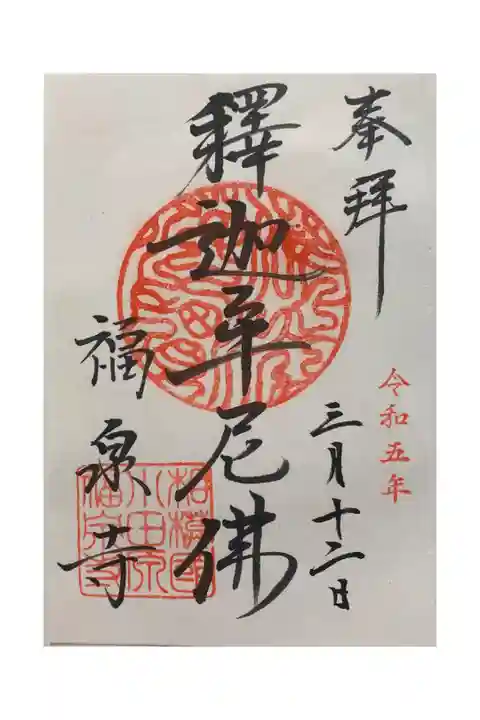 奉拝
令和五年
三月十二日
釋迦牟尼佛
福泉寺
相模國
小田原
福泉寺